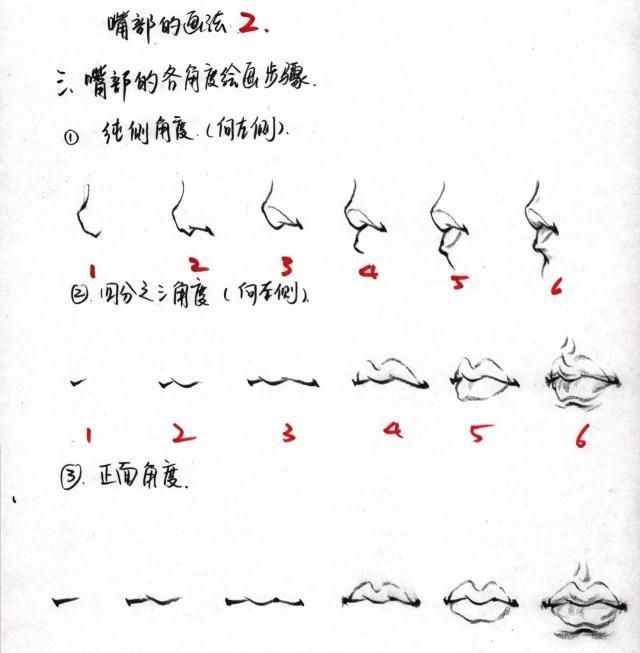 嘴部的画法 2.
三、嘴部的各角度绘画步骤.
① 纯侧角度.(向左侧).
1 2 3 4 5 6
②. 四分之三角度 (向左侧).
1 2 3 4 5 6
③. 正面角度.